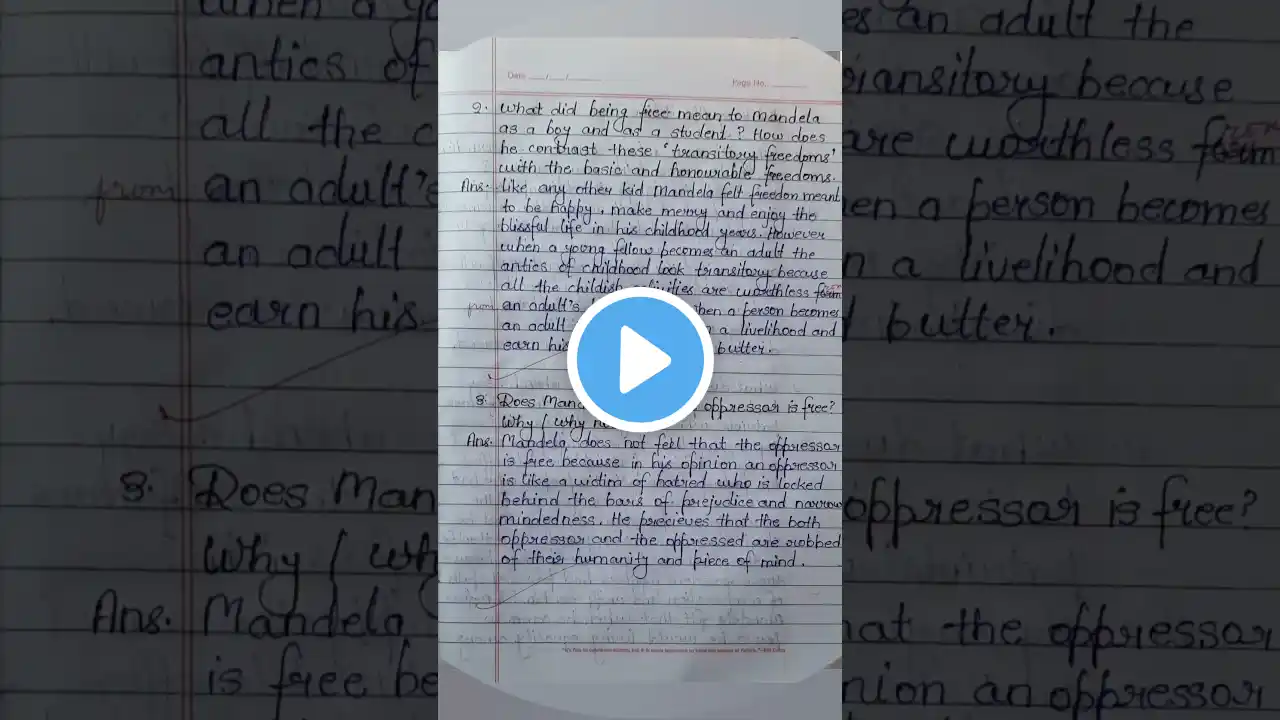 Date ___/___/______
Page No. ______
2. What did being free mean to Mandela
as a boy and as a student? How does
he contrast these 'transitory freedoms'
with the basic and honourable freedoms.
Ans. Like any other kid Mandela felt freedon meant
to be happy, make merry and enjoy the
blissful life in his childhood years. However
when a young fellow becomes an adult the
antics of childhood look transitory because
all the childish are worthless form
from an adult's when a person becomes
an adult a livelihood and
earn his butter.
3. Does oppressor is free?
Why / Why
Ans. Mandela does not feel that the oppressor
is free because in his opinion an oppressor
is like a victim of hatred who is locked
behind the bars of prejudice and narrow
mindedness. He precieves that the both
oppressor and the oppressed are robbed
of their humanity and piece of mind.